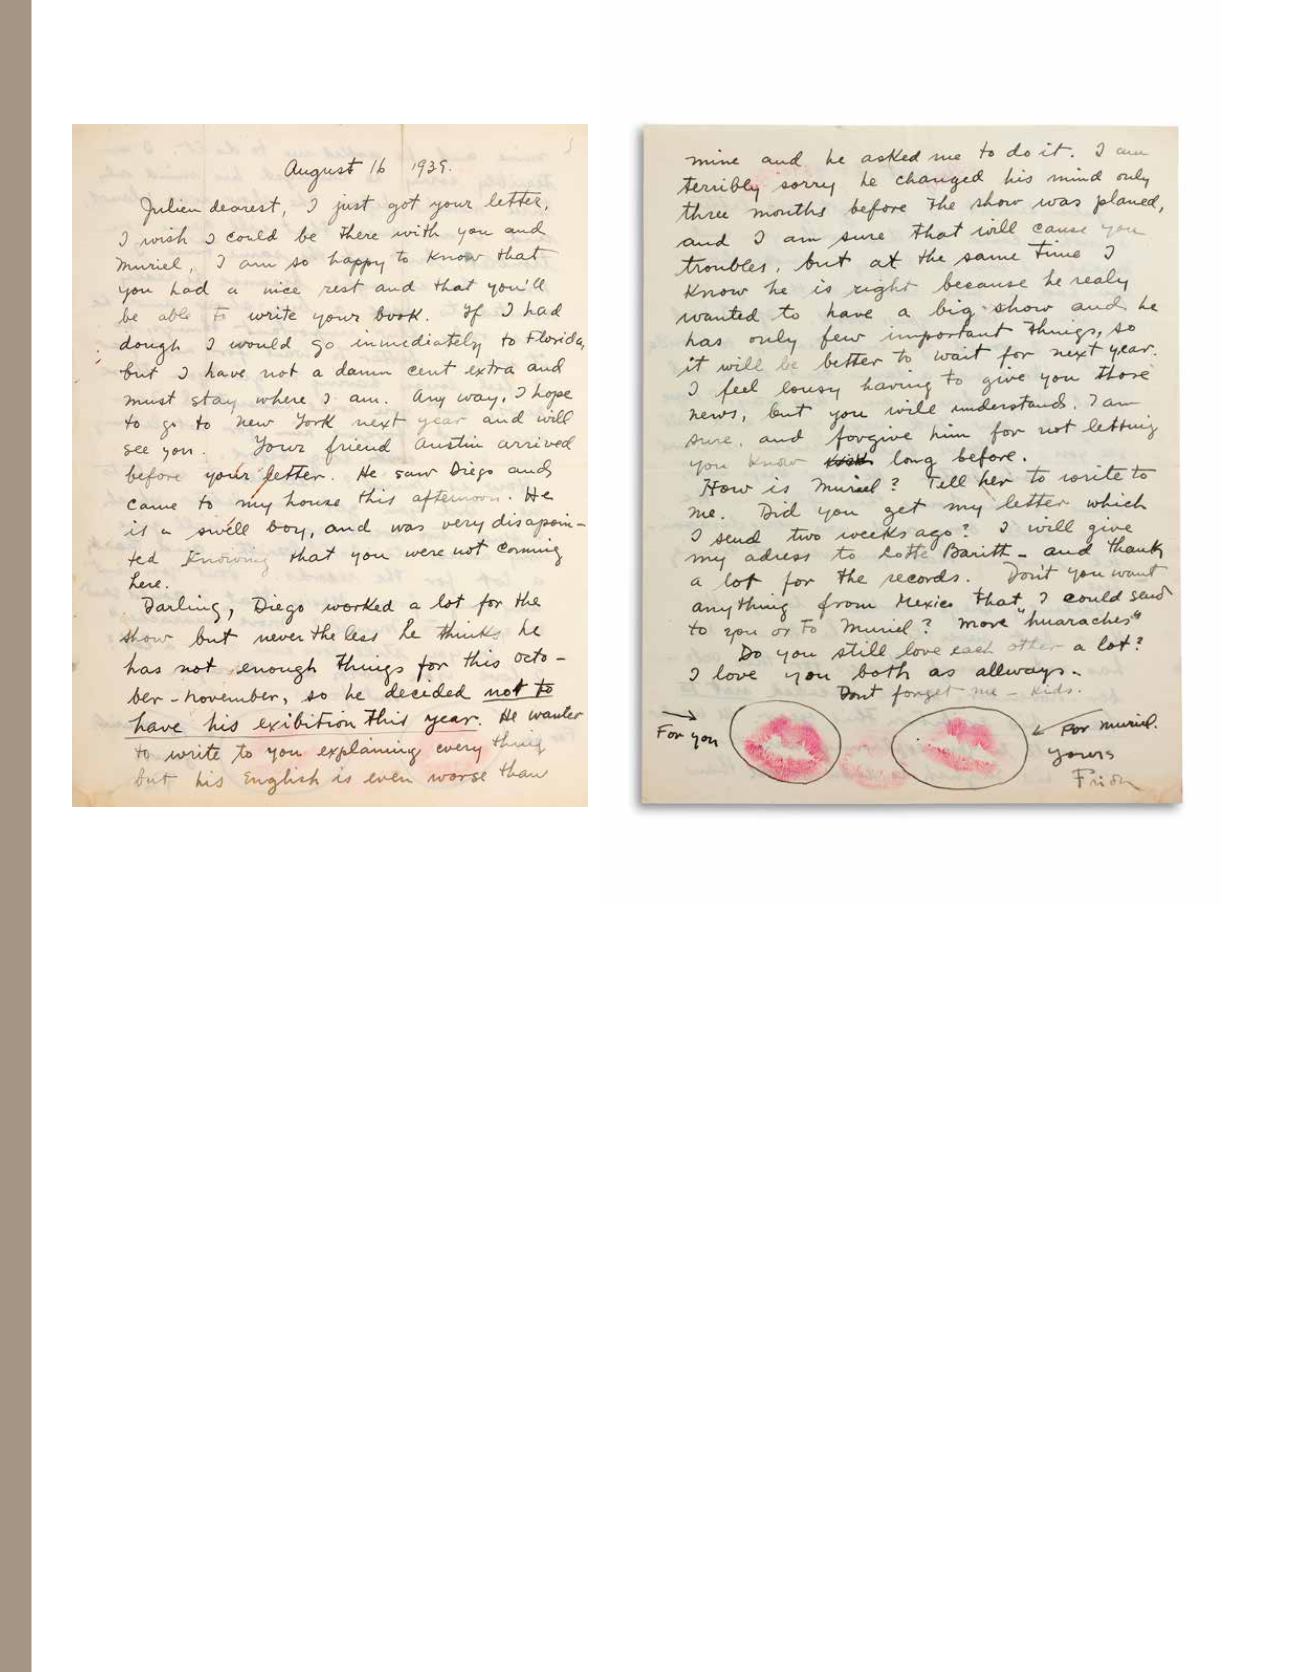 August 16 1939.
Julien dearest, I just got your letter,
I wish I could be there with you and
Muriel, I am so happy to know that
you had a nice rest and that you'll
be able to write your book. If I had
dough I would go inmediately to Florida,
but I have not a damn cent extra and
must stay where I am. Any way, I hope
to go to New York next year and will
see you. Your friend Austin arrived
before your letter. He saw Diego and
came to my house this afternoon. He
is a swell boy, and was very disapoin-
ted knowing that you were not coming
here.
Darling, Diego worked a lot for the
show but never the less he thinks he
has not enough things for this octo-
ber-november, so he decided not to
have his exibition this year. He wanted
to write to you explaining every thing
but his English is even worse than
mine and he asked me to do it. I am
terribly sorry he changed his mind only
three months before the show was planed,
and I am sure that will cause you
troubles, but at the same time I
know he is right because he realy
wanted to have a big show and he
has only few important things, so
it will be better to wait for next year.
I feel lousy having to give you those
news, but you will understand. I am
sure, and forgive him for not letting
you know long before.
How is Muriel? Tell her to write to
me. Did you get my letter which
I send two weeks ago? I will give
my adress to Lotte Baritt - and thank
a lot for the records. Don't you want
anything from Mexico that I could send
to you or to Muriel? More "huaraches"
Do you still love each other a lot?
I love you both as allways.
Dont forget me - kids.
For you
For Muriel.
yours